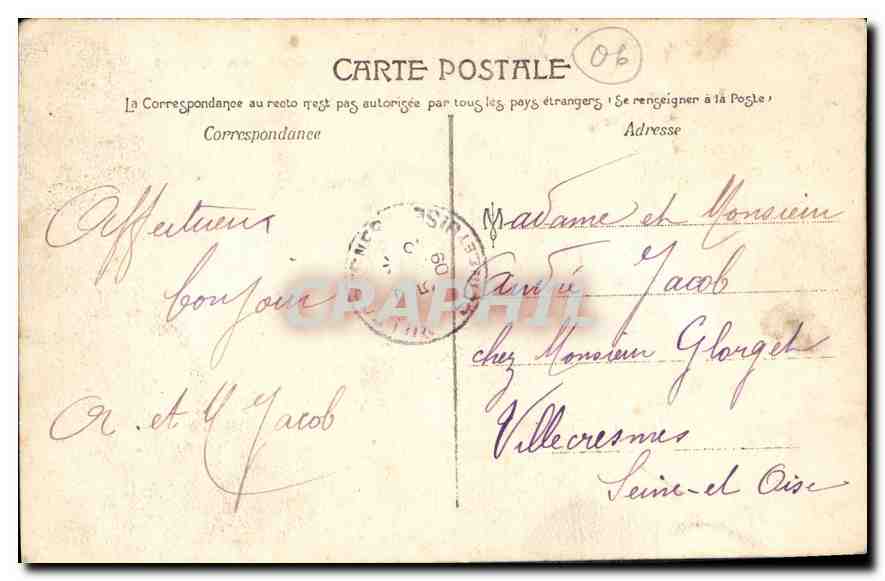 06
CARTE POSTALE
La Correspondance au recto n'est pas autorisée par tous les pays étrangers (Se renseigner à la Poste)
Correspondance
Adresse
Affectueux
bonjour
A. et M Jacob
Madame et Monsieur
André Jacob
chez Monsieur Glorget
Villecresnes
Seine-et Oise
09
CRAPHIL